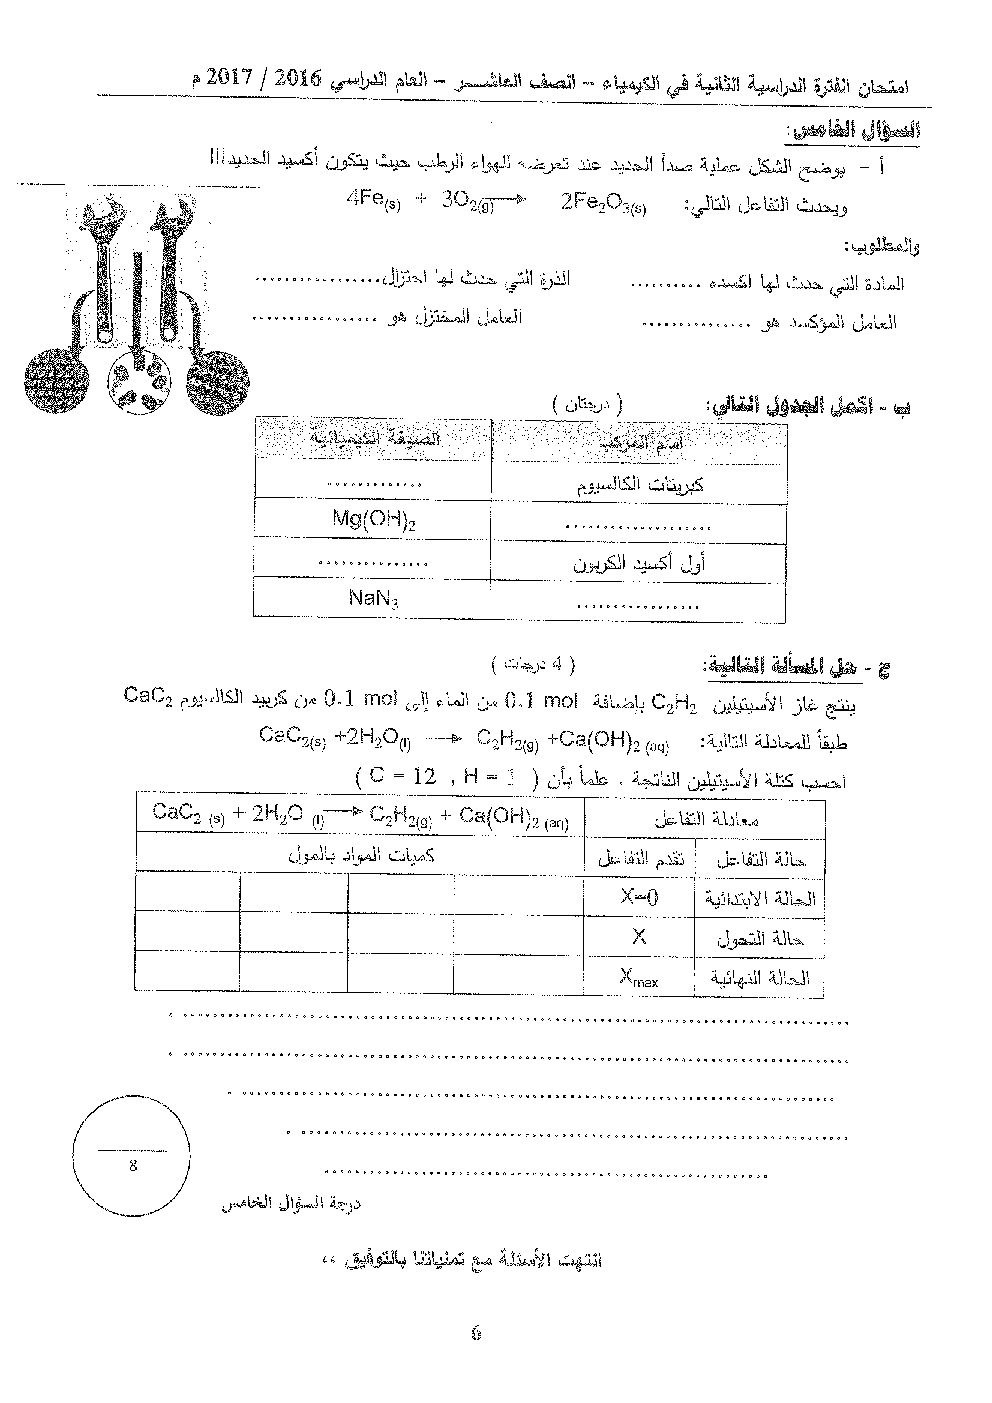 امتحان الفترة الدراسية الثانية في الكيمياء – الصف العاشــر – العام الدراسي 2016 / 2017 م
السؤال الخامس:
أ – يوضح الشكل عملية صدأ الحديد عند تعرضه للهواء الرطب حيث يتكون أكسيد الحديدIII
ويحدث التفاعل التالي: 4Fe(s) + 3O2(g) → 2Fe2O3(s)
والمطلوب:
المادة التي حدث لها اكسده .......... الذرة التي حدث لها اختزال..................
العامل المؤكسد هو ................ العامل المختزل هو ..................
ب - اكمل الجدول التالي: ( درجتان )
اسم المركب الصيغة الكيميائية
كبريتات الكالسيوم ..............
..................... Mg(OH)2
أول أكسيد الكربون ................
.................. NaN3
ج - حل المسألة التالية: ( 4 درجات )
ينتج غاز الأسيتيلين C2H2 بإضافة 0.1 mol من الماء إلى 0.1 mol من كربيد الكالسيوم CaC2
طبقاً للمعادلة التالية: CaC2(s) +2H2O(l) → C2H2(g) +Ca(OH)2 (aq)
احسب كتلة الأسيتيلين الناتجة . علماً بأن ( C = 12 , H = 1 )
معادلة التفاعل CaC2 (s) + 2H2O (l) → C2H2(g) + Ca(OH)2 (aq)
حالة التفاعل تقدم التفاعل كميات المواد بالمول
الحالة الابتدائية X=0
حالة التحول X
الحالة النهائية Xmax
8
درجة السؤال الخامس
انتهت الأسئلة مع تمنياتنا بالتوفيق ،،
6